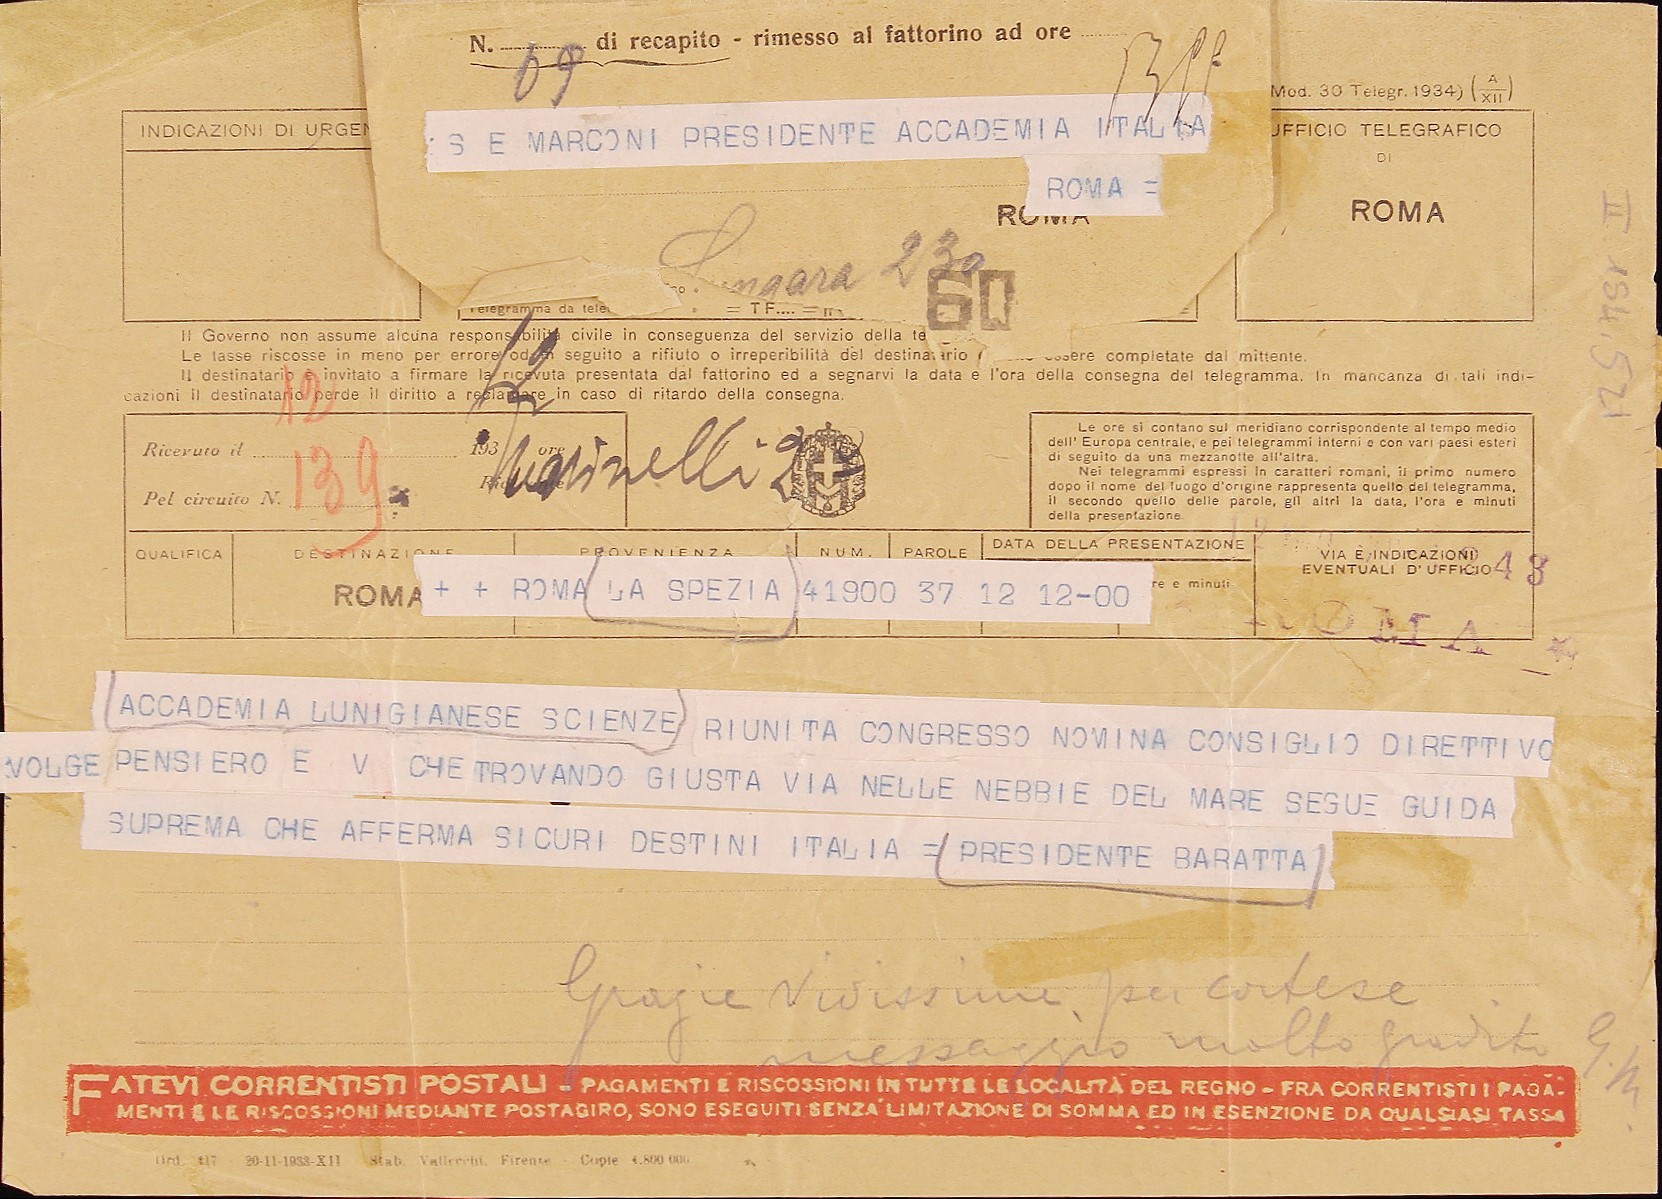 N. 69 di recapito - rimesso al fattorino ad ore
Mod. 30 Telegr. 1934) (A/XII)
INDICAZIONI DI URGEN
: S E MARCONI PRESIDENTE ACCADEMIA ITALIA
ROMA =
ROMA
UFFICIO TELEGRAFICO
DI
ROMA
II 1SA,521
Lungara 230
60
Telegramma da tele
= TF.... =
Il Governo non assume alcuna responsabilità civile in conseguenza del servizio della te
Le tasse riscosse in meno per errore od in seguito a rifiuto o irreperibilità del destinatario ( essere completate dal mittente.
Il destinatario è invitato a firmare la ricevuta presentata dal fattorino ed a segnarvi la data e l'ora della consegna del telegramma. In mancanza di tali indi-
cazioni il destinatario perde il diritto a reclamare in caso di ritardo della consegna.
12
Ricevuto il 193 ore
Pel circuito N. 139
Le ore si contano sul meridiano corrispondente al tempo medio
dell' Europa centrale, e pei telegrammi interni e con vari paesi esteri
di seguito da una mezzanotte all'altra.
Nei telegrammi espressi in caratteri romani, il primo numero
dopo il nome del luogo d'origine rappresenta quello del telegramma,
il secondo quello delle parole, gli altri la data, l'ora e minuti
della presentazione.
QUALIFICA DESTINAZIONE PROVENIENZA NUM. PAROLE DATA DELLA PRESENTAZIONE VIA E INDICAZIONI
EVENTUALI D'UFFICIO
re e minuti
43
ROMA + + ROMA LA SPEZIA 41900 37 12 12-00
ACCADEMIA LUNIGIANESE SCIENZE RIUNITA CONGRESSO NOMINA CONSIGLIO DIRETTIVO
VOLGE PENSIERO E V CHE TROVANDO GIUSTA VIA NELLE NEBBIE DEL MARE SEGUE GUIDA
SUPREMA CHE AFFERMA SICURI DESTINI ITALIA = PRESIDENTE BARATTA
Grazie vivissime per cortese
messaggio molto gradito
G. M.
FATEVI CORRENTISTI POSTALI - PAGAMENTI E RISCOSSIONI IN TUTTE LE LOCALITÀ DEL REGNO - FRA CORRENTISTI I PAGA-
MENTI E LE RISCOSSIONI MEDIANTE POSTAGIRO, SONO ESEGUITI SENZA LIMITAZIONE DI SOMMA ED IN ESENZIONE DA QUALSIASI TASSA
Ord. 417 - 20-11-1933-XII Stab. Vallecchi. Firenze - Copie 4.800 000